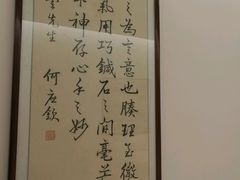 之為言意也腠理至微
氣用巧鍼石之間毫芒
神存心手之妙
先生
何應欽